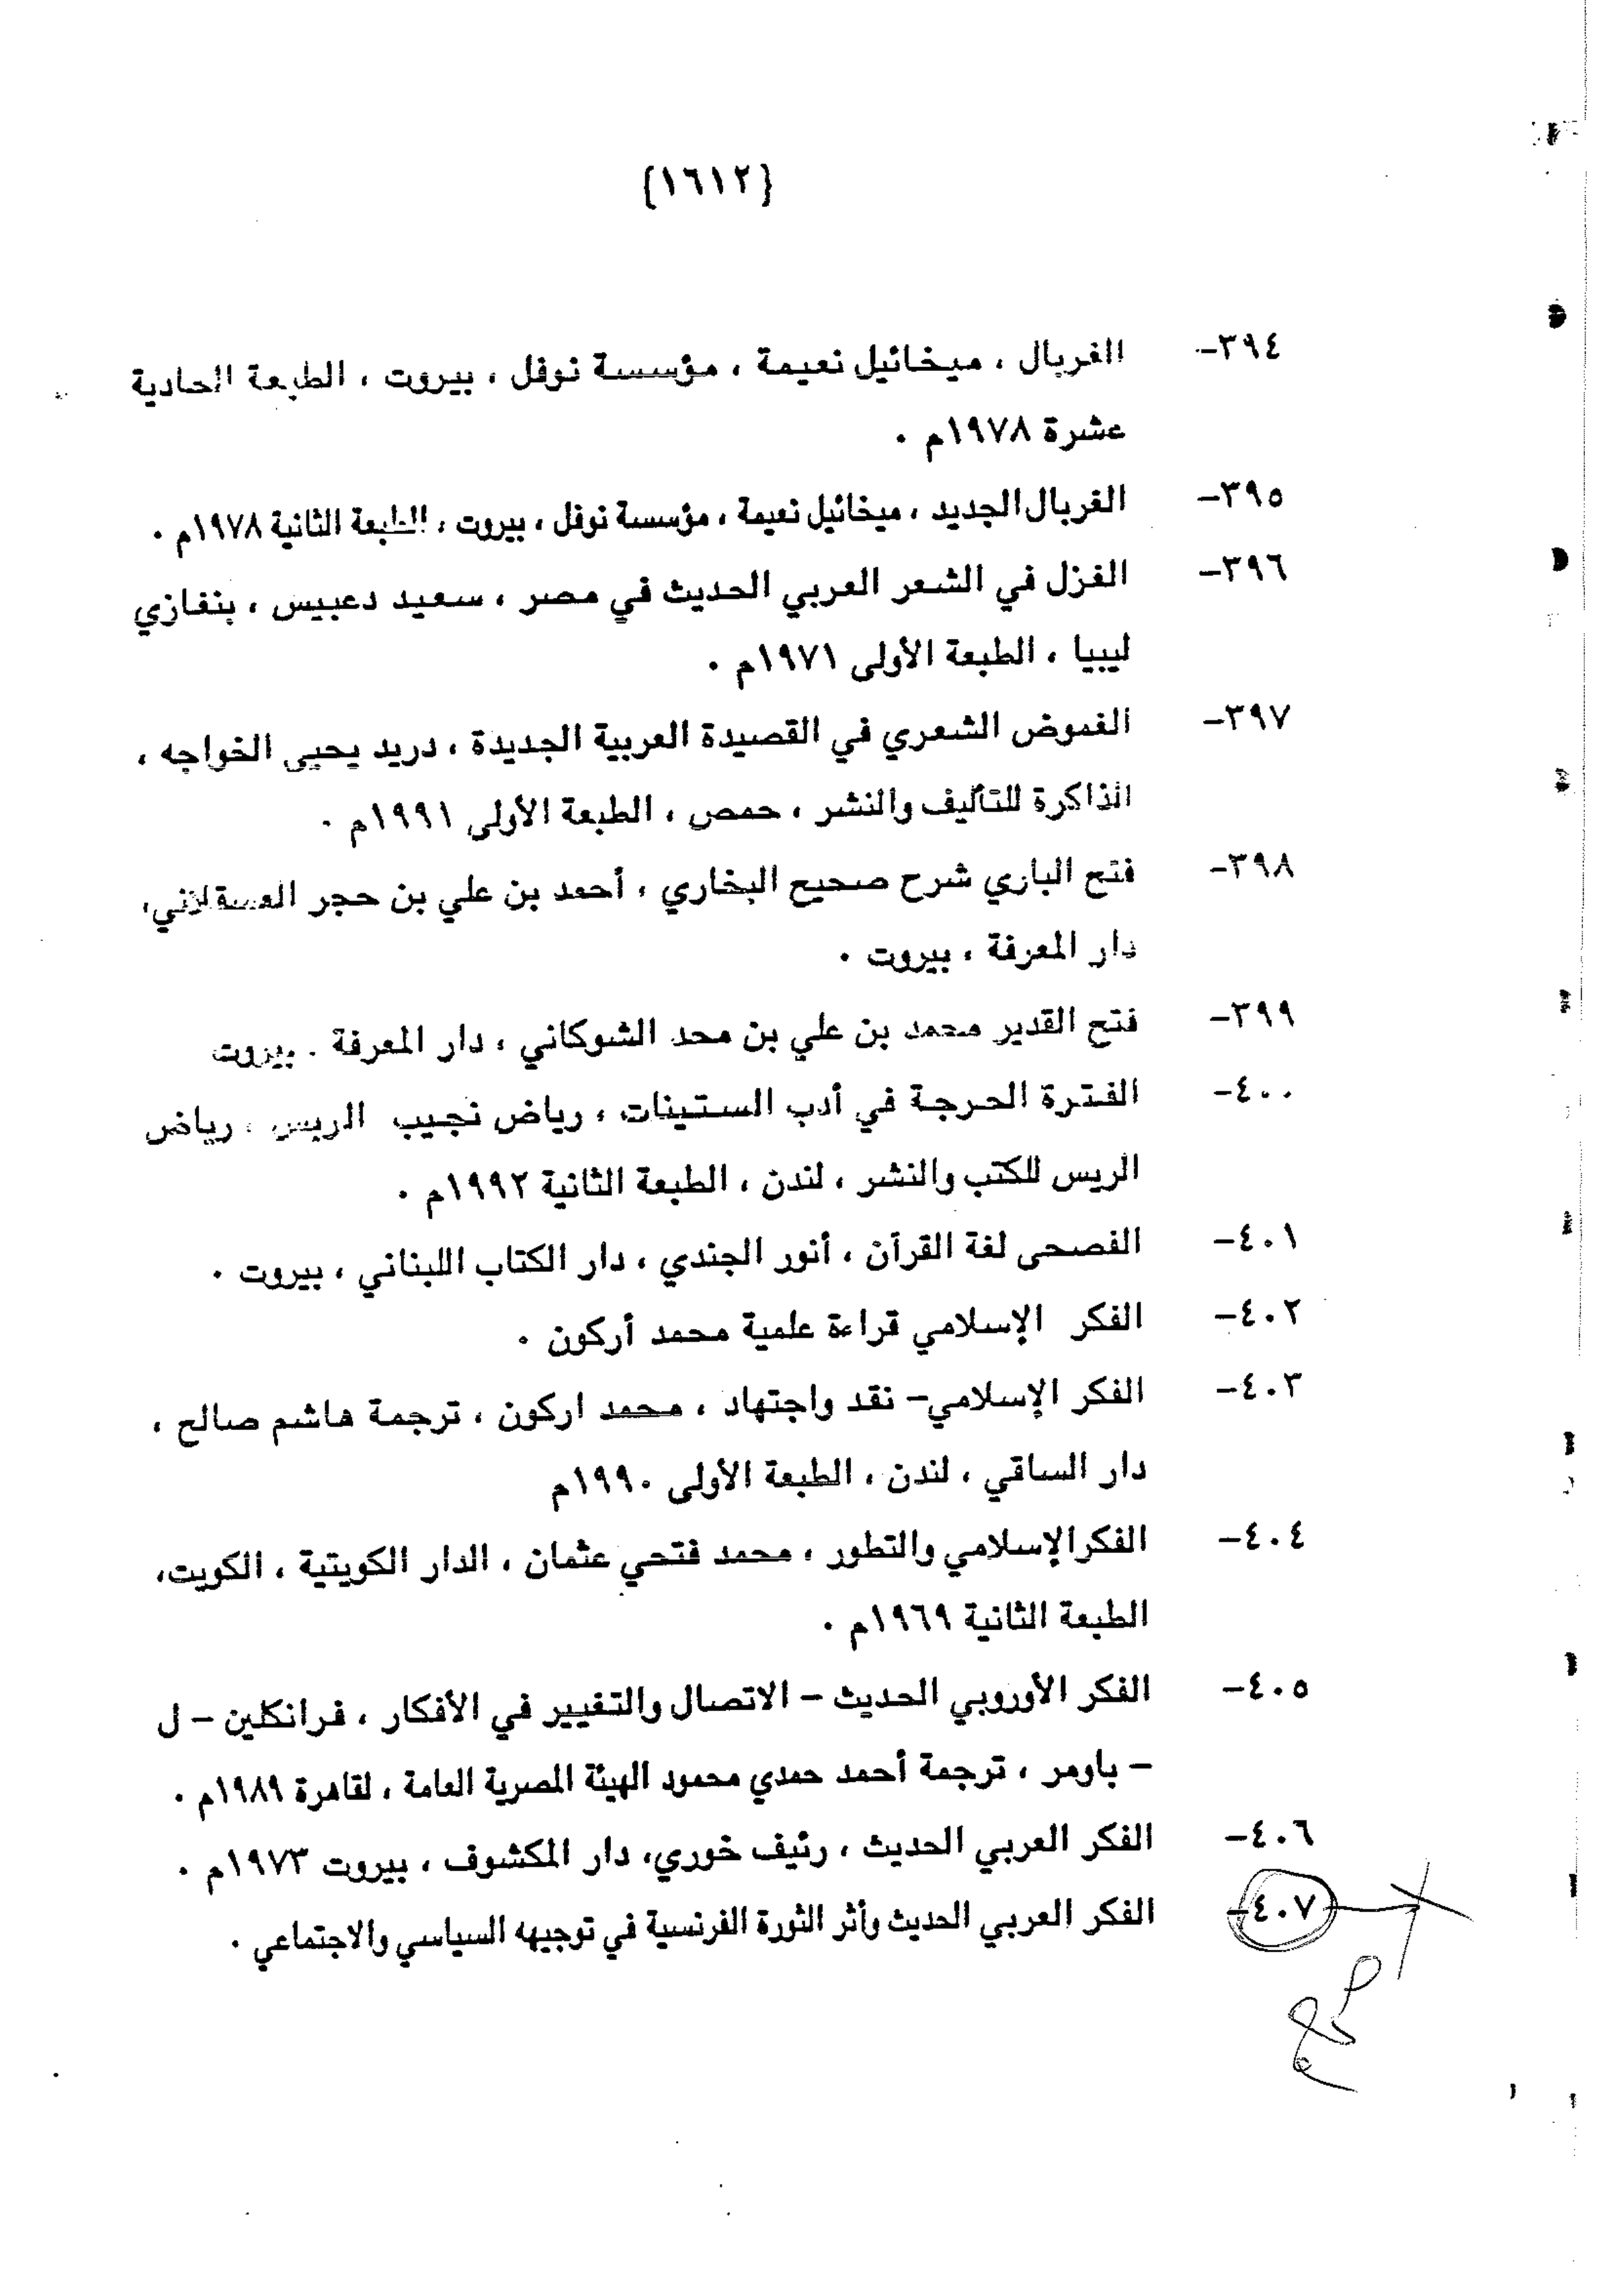 {١٦١٢}
٣٩٤- الغربال ، ميخائيل نعيمة ، مؤسسة نوفل ، بيروت ، الطبعة الحادية
عشرة ١٩٧٨م ٠
٣٩٥- الغربال الجديد ، ميخائيل نعيمة ، مؤسسة نوفل ، بيروت ، الطبعة الثانية ١٩٧٨م ٠
٣٩٦- الغزل في الشعر العربي الحديث في مصر ، سعيد دعبيس ، بنغازي
ليبيا ، الطبعة الأولى ١٩٧١م ٠
٣٩٧- الغموض الشعري في القصيدة العربية الجديدة ، دريد يحيى الخواجه ،
الذاكرة للتأليف والنشر ، حمص ، الطبعة الأولى ١٩٩١م ٠
٣٩٨- فتح الباري شرح صحيح البخاري ، أحمد بن علي بن حجر العسقلاني،
دار المعرفة ، بيروت ٠
٣٩٩- فتح القدير محمد بن علي بن محد الشوكاني ، دار المعرفة . بيروت
٤٠٠- الفترة الحرجة في أدب الستينات ، رياض نجيب الريس ، رياض
الريس للكتب والنشر ، لندن ، الطبعة الثانية ١٩٩٢م ٠
٤٠١- الفصحى لغة القرآن ، أنور الجندي ، دار الكتاب اللبناني ، بيروت ٠
٤٠٢- الفكر الإسلامي قراءة علمية محمد أركون ٠
٤٠٣- الفكر الإسلامي- نقد واجتهاد ، محمد اركون ، ترجمة هاشم صالح ،
دار الساقي ، لندن ، الطبعة الأولى ١٩٩٠م
٤٠٤- الفكرالإسلامي والتطور ، محمد فتحي عثمان ، الدار الكويتية ، الكويت،
الطبعة الثانية ١٩٦٩م ٠
٤٠٥- الفكر الأوروبي الحديث - الاتصال والتغيير في الأفكار ، فرانكلين - ل
- باومر ، ترجمة أحمد حمدي محمود الهيئة المصرية العامة ، لقاهرة ١٩٨٩م ٠
٤٠٦- الفكر العربي الحديث ، رئيف خوري، دار المكشوف ، بيروت ١٩٧٣م ٠
٤٠٧- الفكر العربي الحديث وأثر الثورة الفرنسية في توجيهه السياسي والاجتماعي ٠